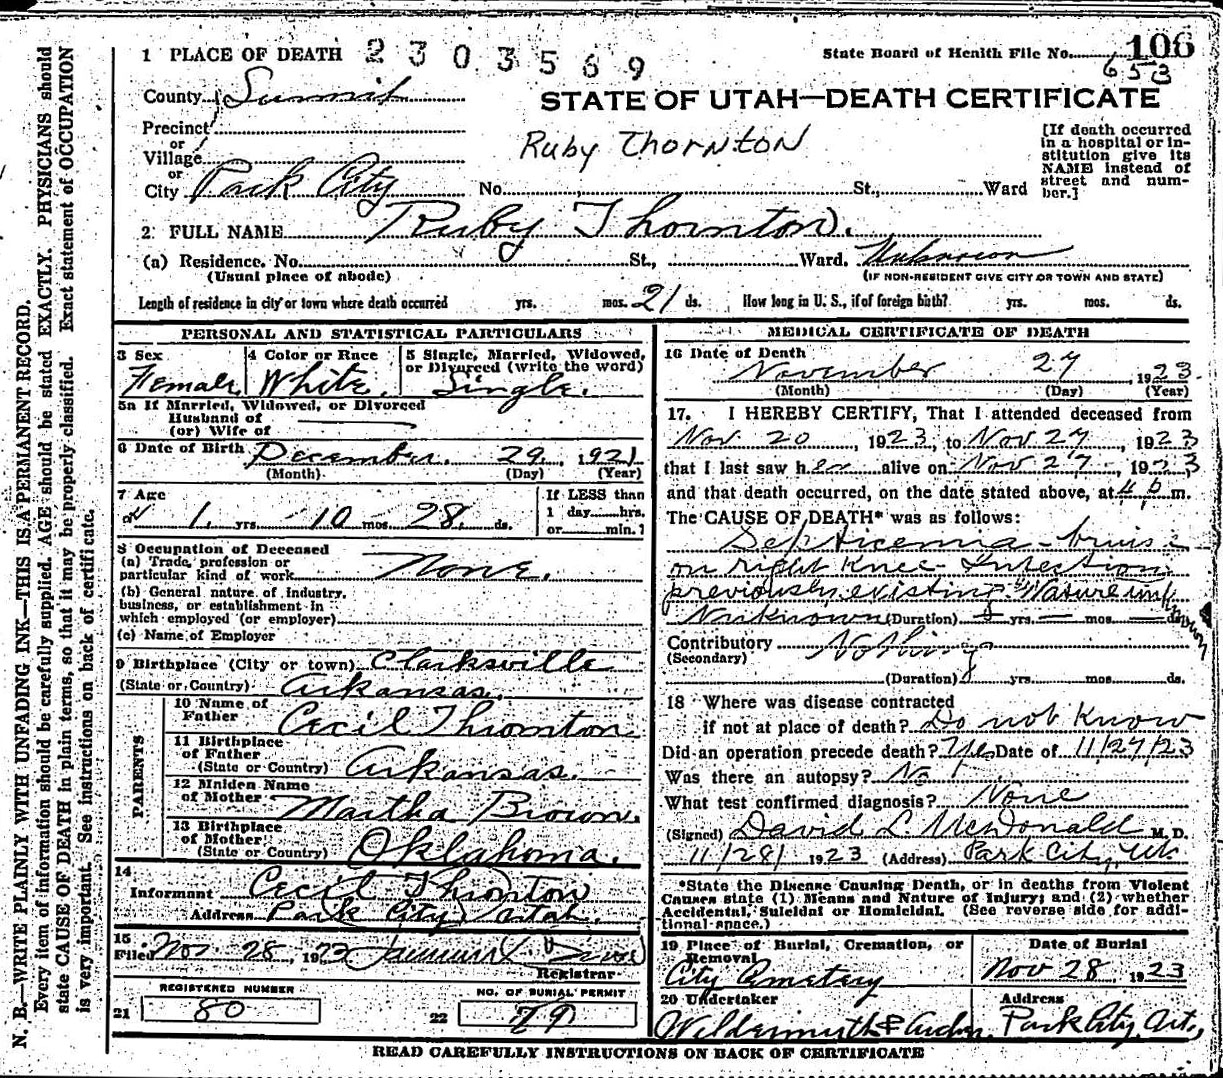 1 PLACE OF DEATH 2303569 State Board of Health File No. 106
653
County Summit
STATE OF UTAH—DEATH CERTIFICATE
Precinct
or
Village
or
City Park City No. St., Ward
Ruby Thornton
[If death occurred in a hospital or institution give its NAME instead of street and number.]
2 FULL NAME Ruby Thornton.
(a) Residence. No. St., Ward.
(Usual place of abode) (IF NON-RESIDENT GIVE CITY OR TOWN AND STATE)
Length of residence in city or town where death occurred yrs. mos. 21 ds. How long in U. S., if of foreign birth? yrs. mos. ds.
PERSONAL AND STATISTICAL PARTICULARS
3 Sex Female.
4 Color or Race White.
5 Single, Married, Widowed, or Divorced (write the word) Single.
5a If Married, Widowed, or Divorced
Husband of
(or) Wife of
6 Date of Birth December. 29, 1921
(Month) (Day) (Year)
7 Age 1. yrs. 10 mos. 28. ds.
If LESS than
1 day hrs.
or min.?
8 Occupation of Deceased
(a) Trade, profession or
particular kind of work None.
(b) General nature of industry,
business, or establishment in
which employed (or employer)
(c) Name of Employer
9 Birthplace (City or town) Clarksville
(State or Country) Arkansas.
PARENTS
10 Name of
Father Cecil Thornton
11 Birthplace
of Father
(State or Country) Arkansas.
12 Maiden Name
of Mother Martha Brown.
13 Birthplace
of Mother
(State or Country) Oklahoma.
14
Informant Cecil Thornton
Address Park City, Utah.
15
Filed Nov. 28, 1923
Registrar
REGISTERED NUMBER
21 80
NO. OF BURIAL PERMIT
22 79
MEDICAL CERTIFICATE OF DEATH
16 Date of Death
November 27 1923.
(Month) (Day) (Year)
17. I HEREBY CERTIFY, That I attended deceased from
Nov. 20, 1923, to Nov 27, 1923
that I last saw her alive on Nov 27, 1923
and that death occurred, on the date stated above, at 4 p m.
The CAUSE OF DEATH* was as follows:
Septicemia - bruise
on right knee - Infection
previously existing Nature
Unknown (Duration) yrs. mos. ds.
Contributory Nothing
(Secondary)
(Duration) yrs. mos. ds.
18 Where was disease contracted
if not at place of death? Do not know
Did an operation precede death? Yes Date of 11/27/23
Was there an autopsy? No
What test confirmed diagnosis? None
(Signed) David L McDonald M.D.
11/28/1923 (Address) Park City, Ut.
*State the Disease Causing Death, or in deaths from Violent
Causes state (1) Means and Nature of Injury; and (2) whether
Accidental, Suicidal or Homicidal. (See reverse side for addi-
tional space.)
19 Place of Burial, Cremation, or Removal
City Cemetery
Date of Burial
Nov 28 1923
20 Undertaker
Address
Park City, Ut.,
READ CAREFULLY INSTRUCTIONS ON BACK OF CERTIFICATE
N. B.—WRITE PLAINLY WITH UNFADING INK—THIS IS A PERMANENT RECORD.
Every item of information should be carefully supplied. AGE should be stated EXACTLY. PHYSICIANS should
state CAUSE OF DEATH in plain terms, so that it may be properly classified. Exact statement of OCCUPATION
is very important. See instructions on back of certificate.